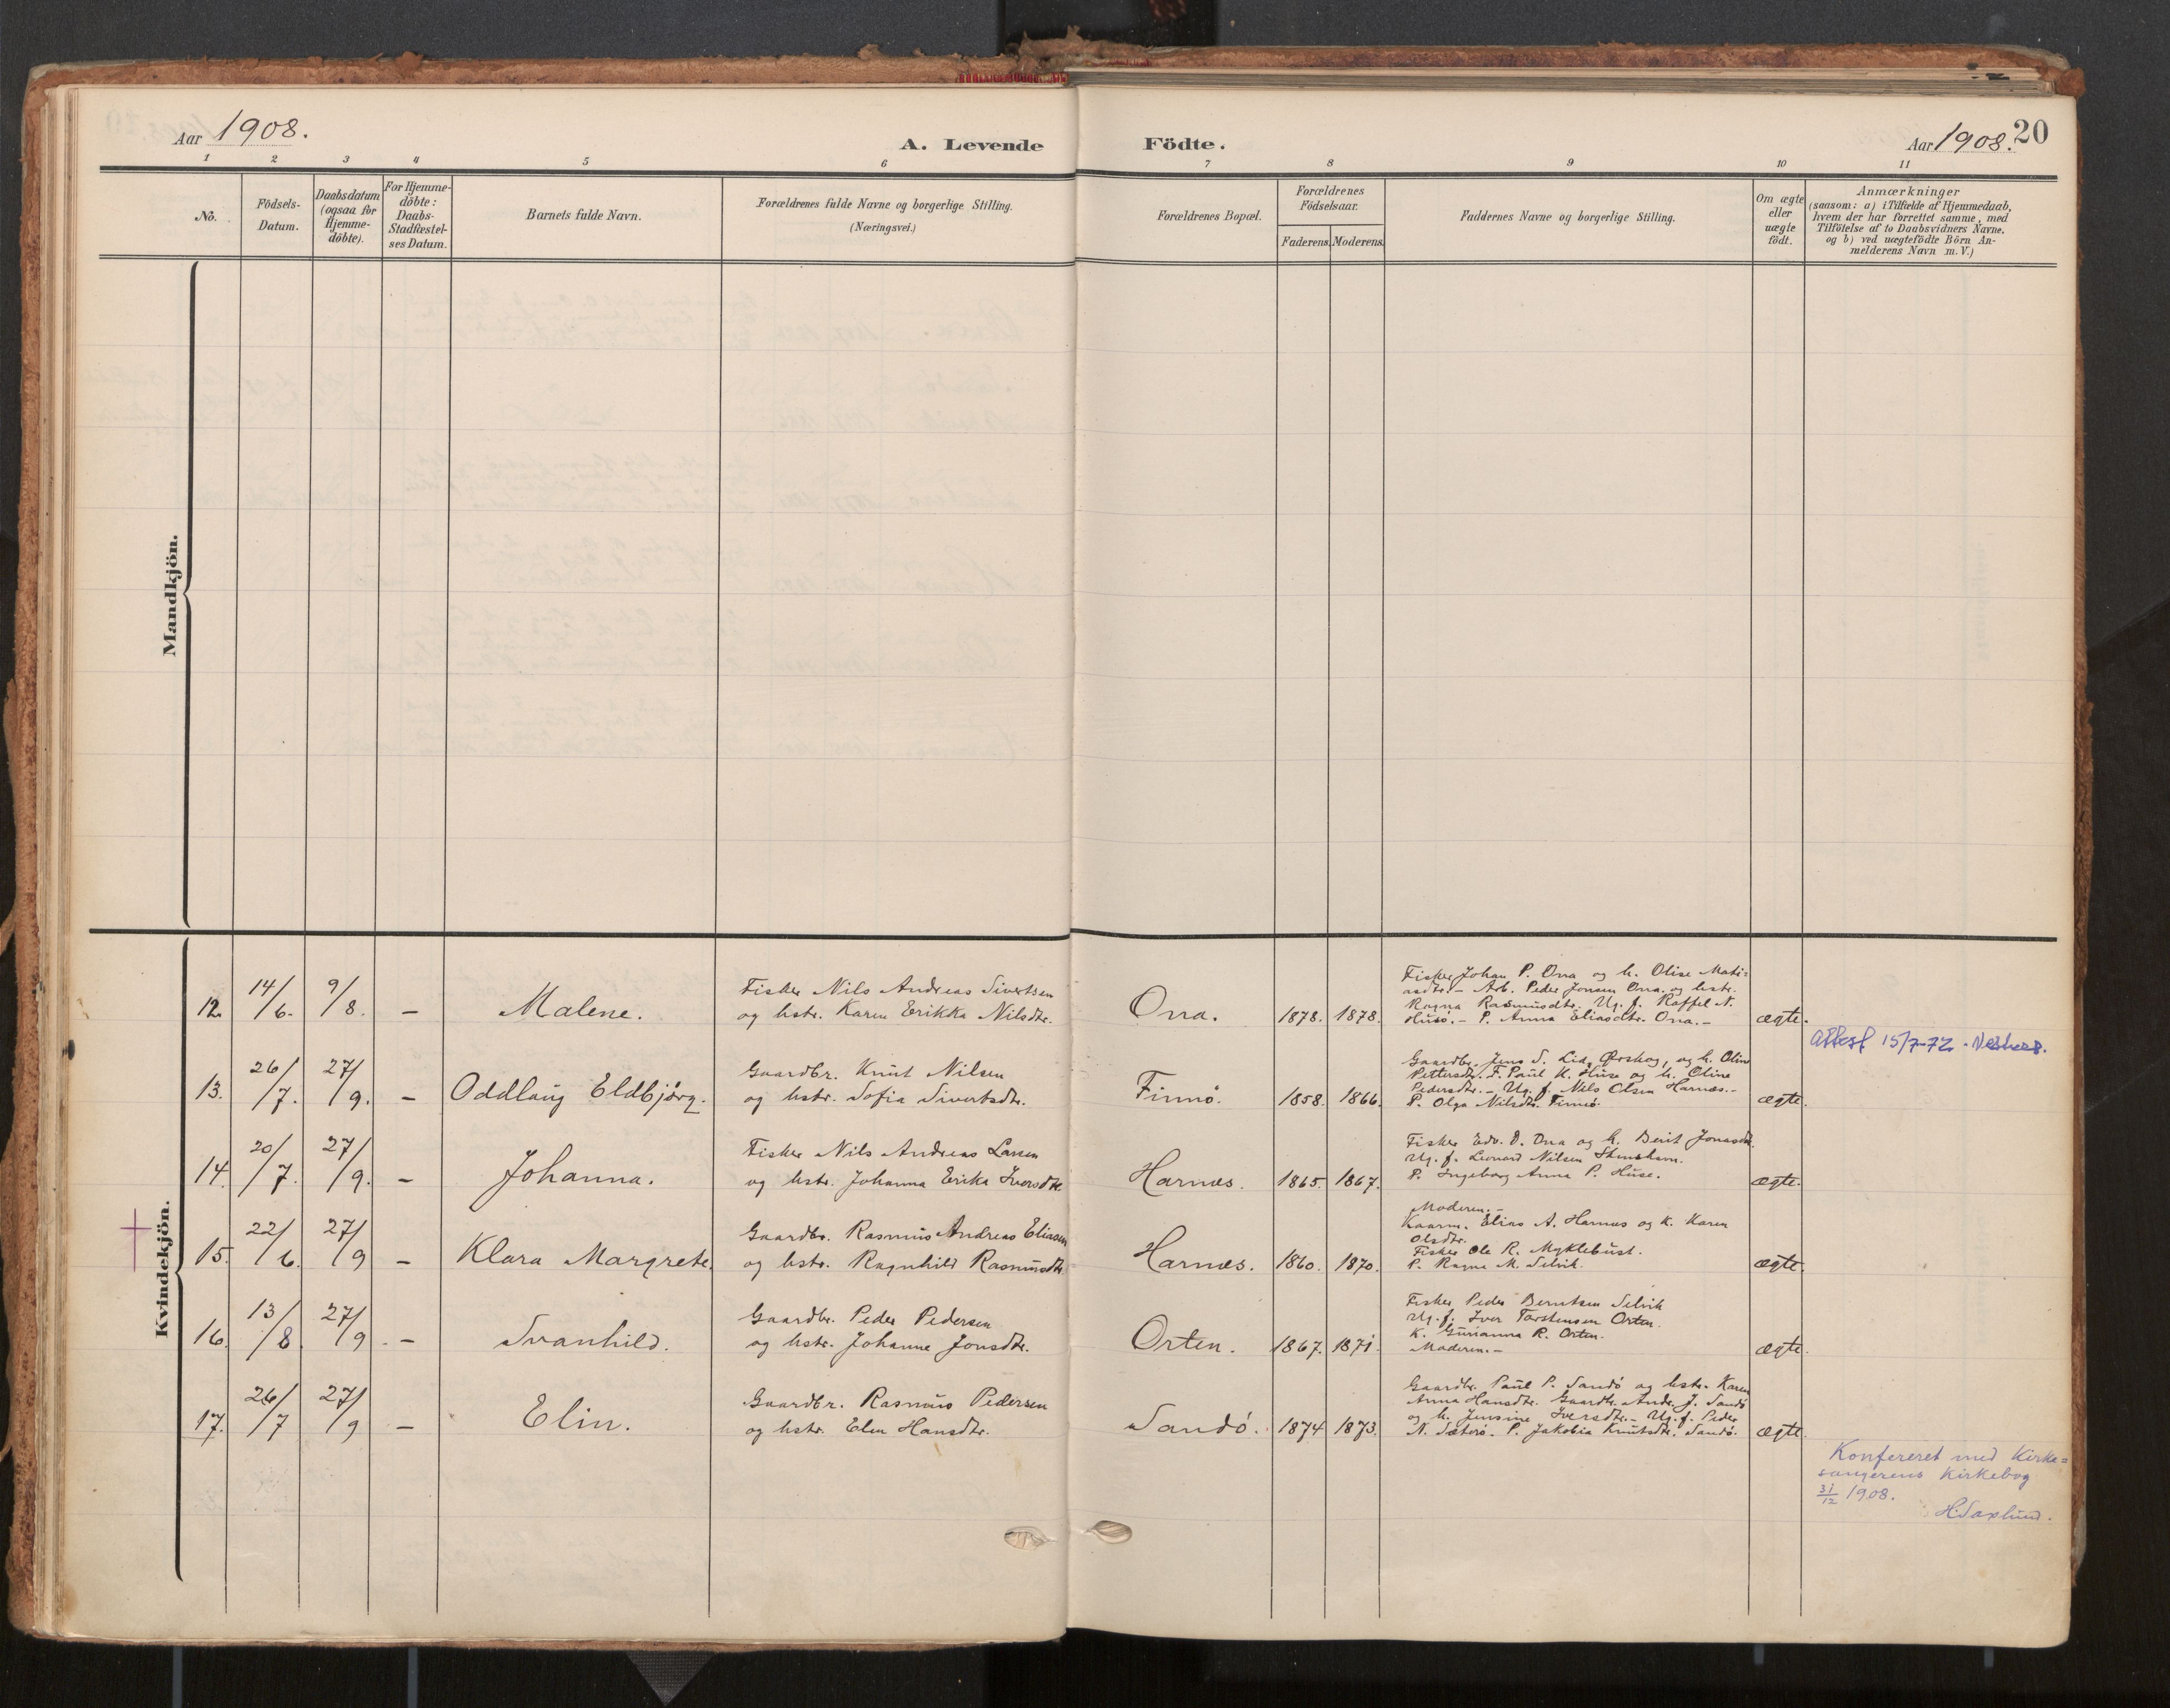 Aar 1908.
A. Levende Födte.
Aar 1908. 20
1 2 3 4 5 6 7 8 9 10 11
No.
Födsels-
Datum.
Daabsdatum
(ogsaa for
Hjemme-
döbte).
For Hjemme-
döbte:
Daabs-
Stadfæstel-
ses Datum.
Barnets fulde Navn.
Forældrenes fulde Navne og borgerlige Stilling.
(Næringsvei.)
Forældrenes Bopæl.
Forældrenes
Födselsaar.
Faderens. Moderens.
Faddernes Navne og borgerlige Stilling.
Om ægte
eller
uægte
födt.
Anmærkninger
(saasom: a) i Tilfælde af Hjemmedaab,
hvem der har forrettet samme, med
Tilföielse af to Daabsvidners Navne,
og b) ved uægtefödte Börn An-
melderens Navn m. V.)
Mandkjön.
Kvindekjön.
12. 14/6. 9/8. – Malene.
Fisker Nils Andreas Sivertsen
og hstr. Karen Erikka Nilsdtr.
Ona. 1878. 1878.
Fisker Johan P. Ona og h. Olise Mati=
asdtr. – Arb. Peder Jonsen Ona. og hstr.
Ragna Rasmusdtr. Ug. f. Raffel N.
Husö. – P. Anna Eliasdtr. Ona. –
ægte.
Attest 15/7-72 .
13. 26/7. 27/9. – Oddlaug Eldbjörg.
Gaardbr. Knut Nilsen
og hstr. Sofia Sivertsdtr.
Finnö. 1858. 1866.
Gaardbr. Jens S. Lid, Ørskog, og h. Oline
Pettersdtr. F. Paul K. Huse og h. Oline
Pedersdtr. – Ug. f. Nils Olsen Harnæs. –
P. Olga Nilsdtr. Finnö.
ægte.
14. 20/7. 27/9. – Johanna.
Fisker Nils Andreas Larsen
og hstr. Johanna Erika Iversdtr.
Harnæs. 1865. 1867.
Fisker Edv. D. Ona og h. Berit Jonasdtr.
Ug. f. Leonard Nilsen Stenshavn.
P. Ingeborg Anna P. Huse.
ægte.
15. 22/6. 27/9 – Klara Margrete.
Gaardbr. Rasmus Andreas Eliasen
og hstr. Ragnhild Rasmusdtr.
Harnæs. 1860. 1870.
Moderen. –
Kaarm. Elias A. Harnæs og K. Karen
Olsdtr.
Fisker Ole R. Myklebust.
P. Ragna M. Selvik.
ægte.
16. 13/8. 27/9 – Svanhild.
Gaardbr. Peder Pedersen
og hstr. Johanne Jonsdtr.
Orten. 1867. 1871.
Fisker Peder Berntsen Selvik
Ug. f. Iver Torstensen Orten.
K. Gurianna R. Orten.
Moderen. –
ægte.
17. 26/7 27/9 – Elin.
Gaardbr. Rasmus Pedersen
og hstr. Elen Hansdtr.
Sandö. 1874 1873.
Gaardbr. Paul P. Sandö og hstr. Karen
Anna Hansdtr. Gaardbr. Andr. J. Sandö
og h. Jensine Iversdtr. – Ug. f. Peder
N. Sæterö. P. Jakobia Knutsdtr. Sandö.
ægte.
Konfereret med Kirke=
sangerens Kirkebog
31/12 1908.
H. Saxlund.